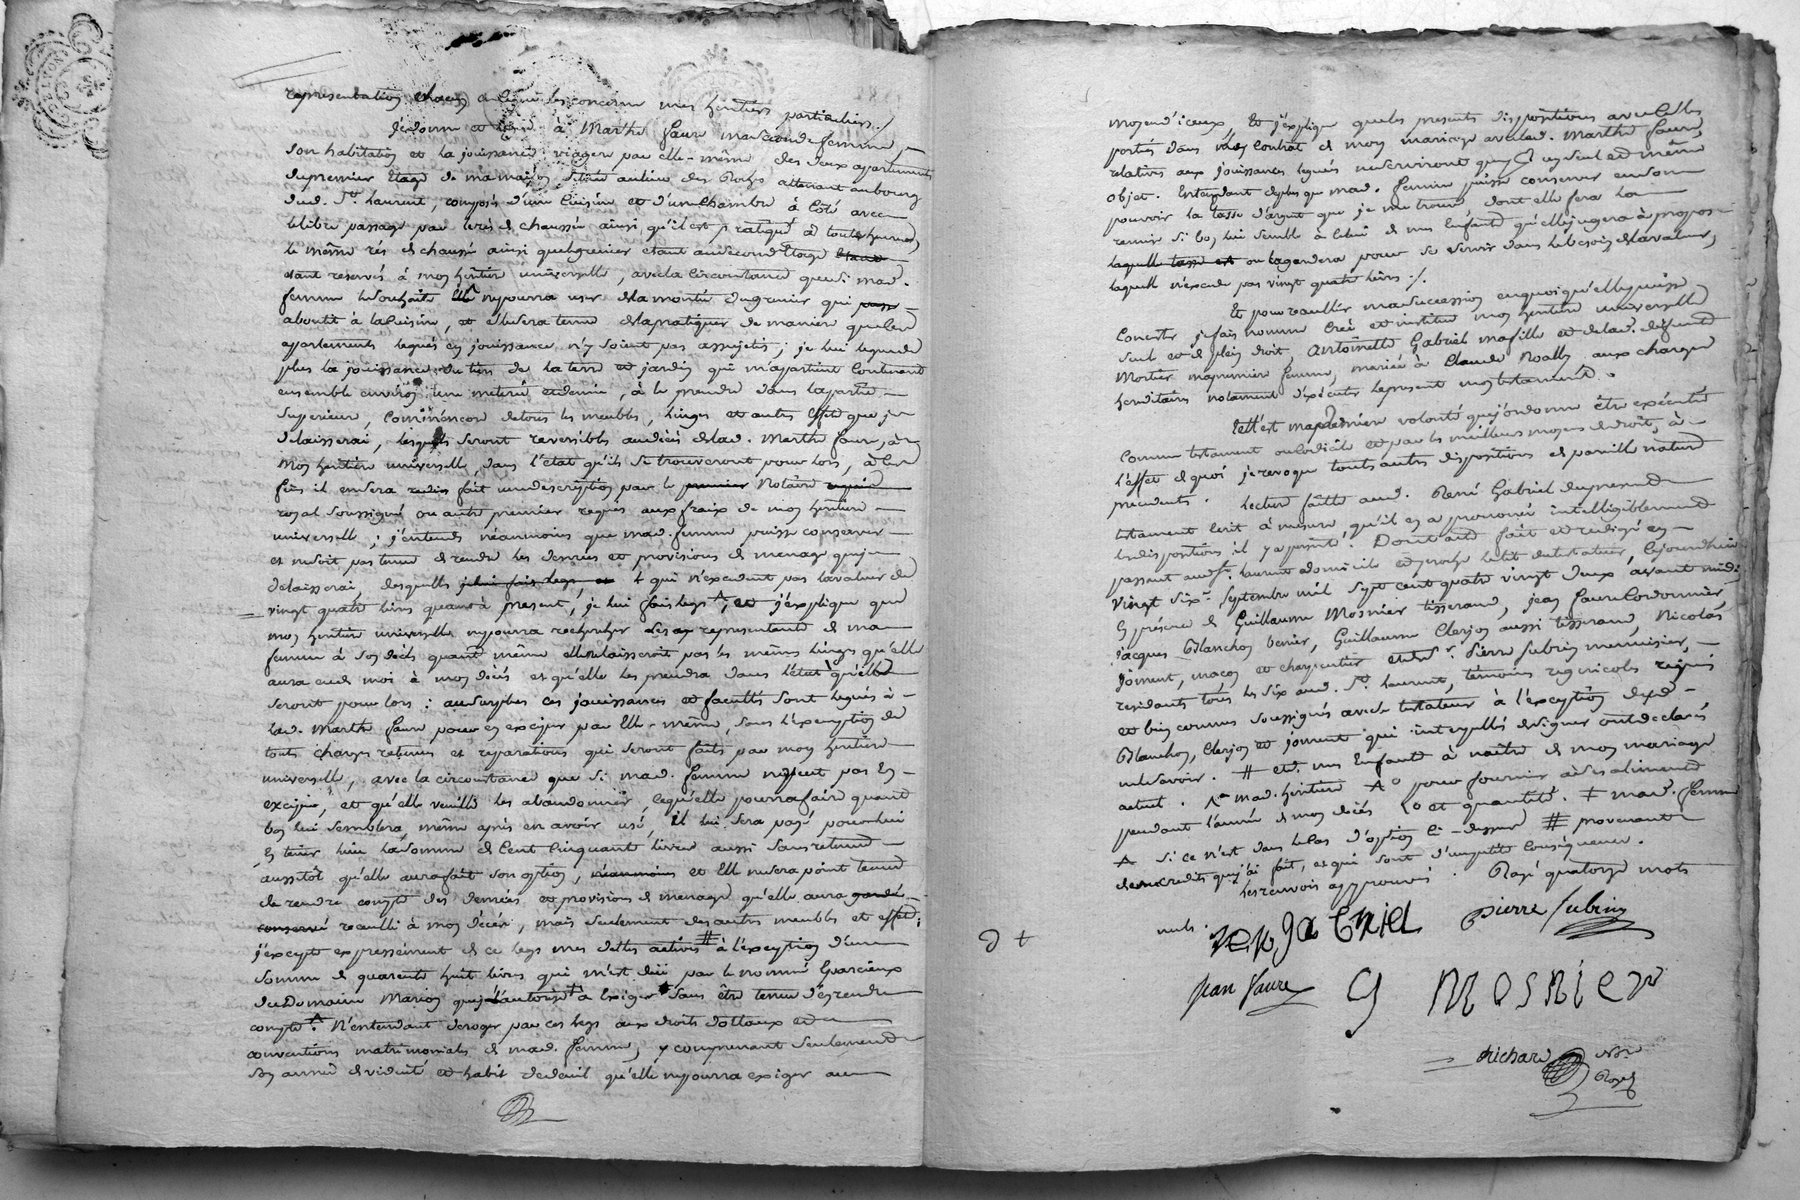 representation chacun en ce qui les concerne mes heritiers particuliers./
Je donne et legue à Marthe faure ma seconde femme
son habitation et la jouissance viagere par elle-même des deux appartements
du premier Etage de ma maison située au lieu des Roches attenant au bourg
dud. St. laurent, composés d'une Cuisine et d'une chambre à côté avec
le libre passage par le rés de chaussée ainsi qu'il est pratiqué à toutes heures,
le même rés de chaussée ainsi que le grenier étant au second Etage
étant reservés à mon héritiere universelle, avec la circonstance que si mad.
femme le souhaite Elle ne pourra user de la montée du grenier qui passe
aboutit à la Cuisine, et elle sera tenue de la pratiquer de maniere que les
appartements legués en jouissance n'y soient pas assujetis; je lui legue de
plus la jouissance du tiers de la terre et jardin qui m'apartient Contenant
ensemble environ une meterée et demie, à le prendre dans la partie
superieure, Comme encore de tous les meubles, linges et autres effets que je
delaisserai, lesquels seront reversibles au décès de lad. Marthe faure, à
mon heritiere universelle, dans l'état qu'ils se trouveront pour lors, à ces
fins il en sera fait une description par le premier Notaire
royal soussigné ou autre premier requis aux fraix de mon heritiere
universelle; j'entends néanmoins que mad. femme puisse conserver
et ne soit pas tenue de rendre les denrées et provisions de menage que je
delaisserai, desquelles je lui fais legs, et + qui n'excedent pas la valeur de
vingt quatre livres quant à present, je lui fais legs ^, et j'explique que
mon heritiere universelle ne pourra rechercher les representants de ma
femme à son décès quand même elle ne laisseroit pas les mêmes linges qu'elle
aura eus de moi à mon décès et qu'elle les prendra dans l'état qu'elle
seront pour lors: au surplus ces jouissances et facultés sont legués à
lad. Marthe faure, pour en exciper par Elle-même, sous l'exemption de
toutes charges retenues et reparations qui seront faites par mon heritiere
universelle, avec la circonstance que si mad. femme ne peut pas En
exciper, et qu'elle veuille les abandonner, ce qu'elle pourra faire quand
bon lui semblera, même après en avoir usé, il lui sera payé pour lui
En tenir lieu la somme de Cent Cinquante livres aussi sans retenue
aussitôt qu'elle aura fait son option, néanmoins et Elle ne sera point tenue
de rendre compte des denrées et provisions de menage qu'elle aura gardé
conservé recueilli à mon décès, mais seulement des autres meubles et effets;
j'excepte expressément de ce legs mes dettes actives # à l'exception d'une
somme de quarente huit livres qui m'est düe par le nommé Guarcieux
du Domaine Marion que je l'autorise + à Exiger sans être tenue d'en rendre
compte. ^ N'entendant deroger par ces legs aux droits dottaux et
conventions matrimoniales de mad. femme, y comprenant seulement
son année de viduité et habit de deuil qu'elle ne pourra exiger au
moyen d'iceux, Et j'explique que les presentes dispositions avec celles
portés dans mon Contrat de mariage avec lad. Marthe faure,
relatives aux jouissances leguées ne serviront que d'un seul et même
objet. Entendant de plus que mad. femme puisse conserver en son
pouvoir la tasse d'argent que je me trouve dont elle fera la
remise si bon lui semble à celui de mes enfants qu'elle jugera à propos
laquelle tasse est ou la gardera pour se servir dans le besoin de la valeur,
laquelle n'excede pas vingt quatre livres ./.
Et pour recueillir ma succession en quoi qu'elle puisse
Consister je fais nomme créé et institue mon heritiere universelle
seule et de plein droit, antoinette Gabriel ma fille et de lad. defunte
Mortier ma premiere femme, mariée à Claude Noally aux charges
hereditaires notament d'éxécuter le present mon testament.
Telle est ma derniere volonté que j'ordonne être exécutée
comme testament ou codicile et par les meilleurs moyens de droit, à
l'effet de quoi je revoque toutes autres dispositions de pareille nature
precedents. Lecture faitte aud. René Gabriel du present
testament Ecrit à mesure qu'il en a prononcé intelligiblement
les dispositions il y a persisté. Dont acte fait et redigé en
passant aud. St. laurent domicile et proche le lit du testateur, Cejourd'hui
vingt six.e septembre mil sept cent quatre vingt deux avant midi
En présence de Guillaume Mosnier tisserand, jean faure Cordonnier,
Jacques Blanchon verrier, Guillaume Clerjon aussi tisserand, Nicolas
Joiment, maçon et charpentier et de Sr. Pierre Subrin menuisier,
residants tous les six aud. St. laurent, temoins regnicoles requis
et bien connus soussignés avec le testateur à l'exception desd.
Blanchon, Clerjon et joiment qui interpellés de signer ont declarés
ne le savoir. # et de mes Enfants à naitre de mon mariage
actuel. ^ mad. heritiere ^° pour fournir à ses aliments
pendant l'année de mon décès L° et quantité. ‡ mad. femme
^ si ce n'est dans le cas d'option ci-dessus # provenants
de mes credits que j'ai fait, et qui sont d'une petite Consequence.
les renvois approuvés. Rayé quatorze mots
nuls.
René gabriel Pierre subrin
jean faure G MOSNIER
Richard Nre
Royal